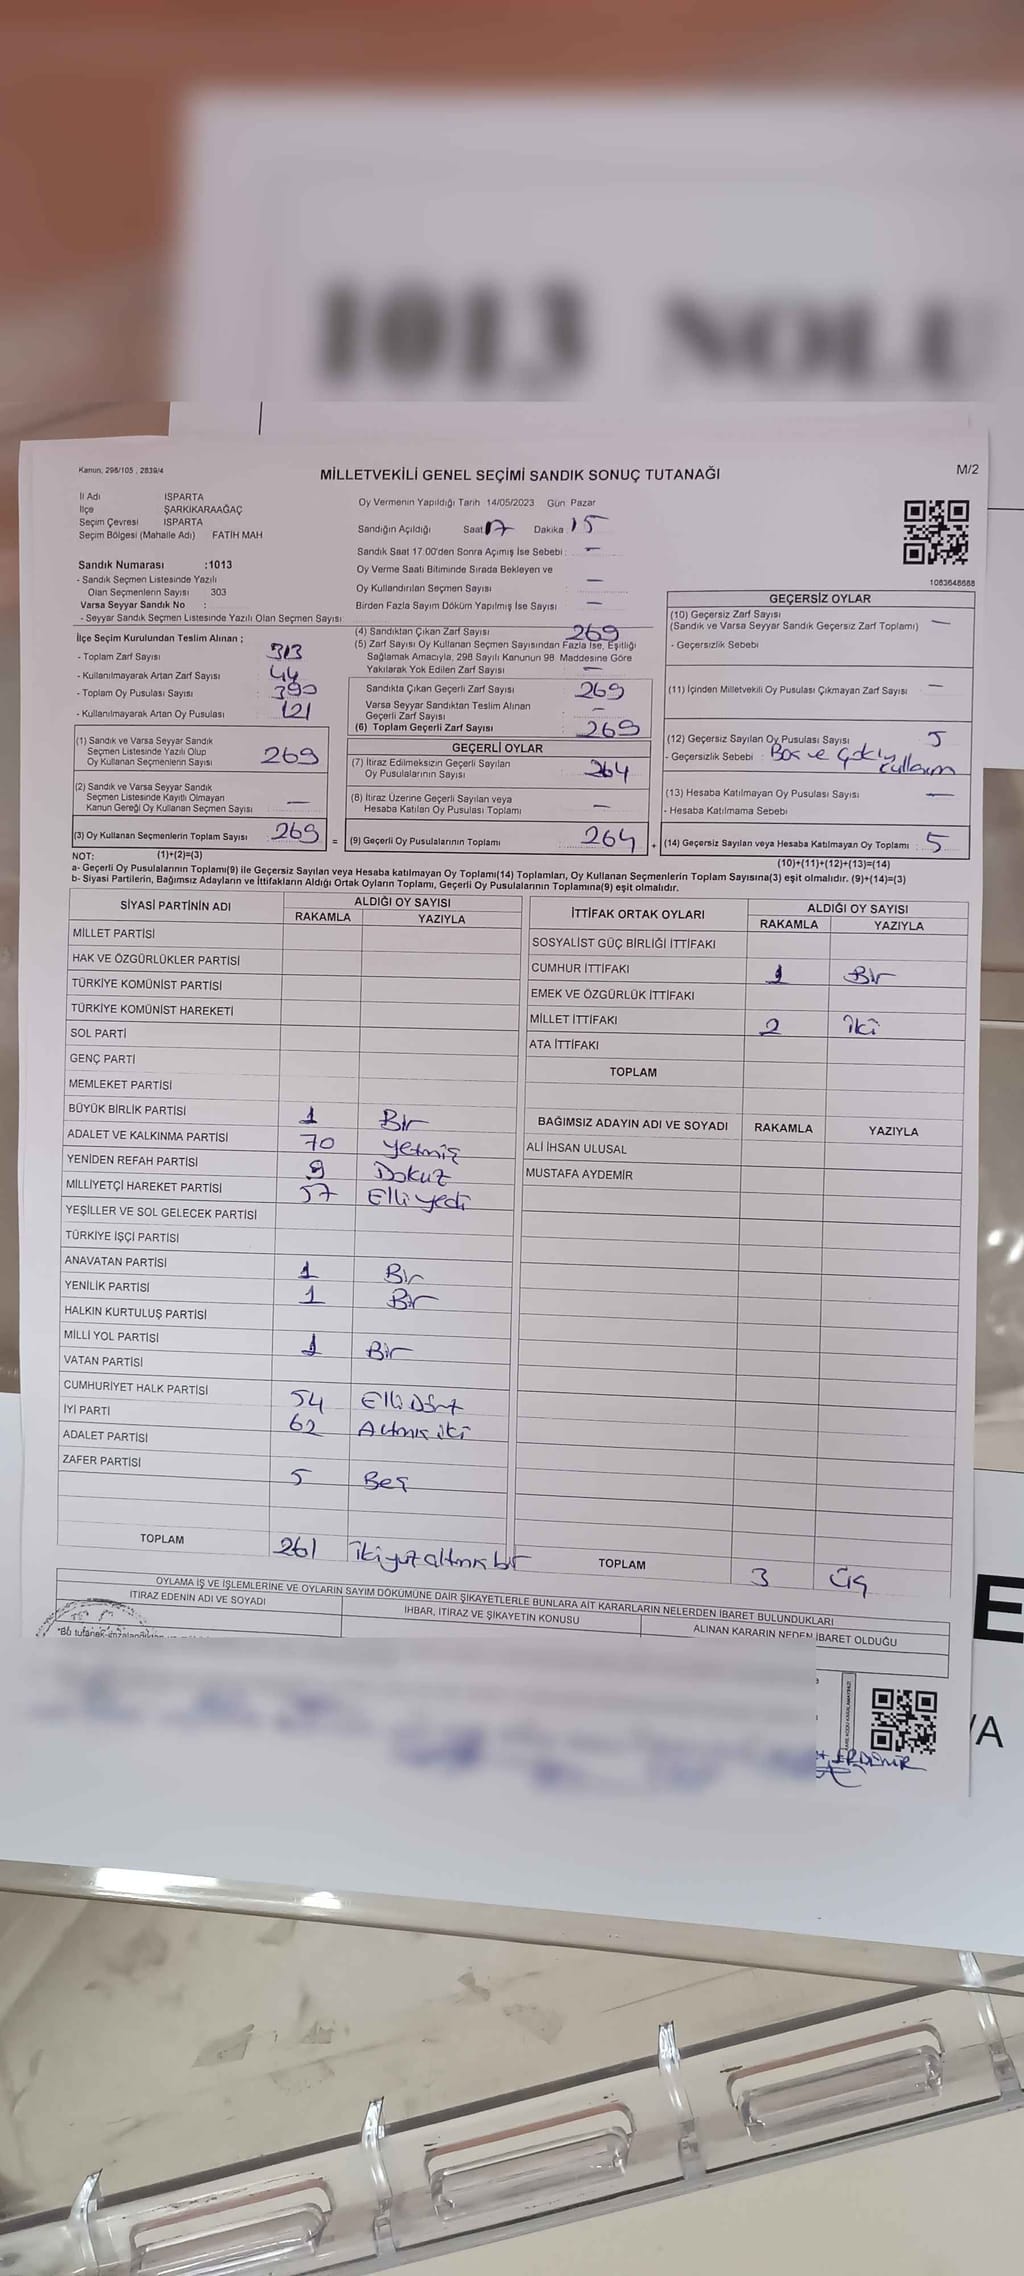 1013 NOLU
Kanun, 298/105 , 2839/4
MİLLETVEKİLİ GENEL SEÇİMİ SANDIK SONUÇ TUTANAĞI
M/2
İl Adı ISPARTA
İlçe ŞARKİKARAAĞAÇ
Seçim Çevresi ISPARTA
Seçim Bölgesi (Mahalle Adı) FATİH MAH
Oy Vermenin Yapıldığı Tarih 14/05/2023 Gün Pazar
Sandığın Açıldığı Saat 17 Dakika 15
Sandık Saat 17.00'den Sonra Açımış İse Sebebi : –
Oy Verme Saati Bitiminde Sırada Bekleyen ve
Oy Kullandırılan Seçmen Sayısı : –
Birden Fazla Sayım Döküm Yapılmış İse Sayısı : –
1083648688
Sandık Numarası :1013
- Sandık Seçmen Listesinde Yazılı
Olan Seçmenlerin Sayısı 303
Varsa Seyyar Sandık No :
- Seyyar Sandık Seçmen Listesinde Yazılı Olan Seçmen Sayısı :
İlçe Seçim Kurulundan Teslim Alınan ;
- Toplam Zarf Sayısı : 313
- Kullanılmayarak Artan Zarf Sayısı : 44
- Toplam Oy Pusulası Sayısı : 390
- Kullanılmayarak Artan Oy Pusulası : 121
(1) Sandık ve Varsa Seyyar Sandık
Seçmen Listesinde Yazılı Olup
Oy Kullanan Seçmenlerin Sayısı 269
(2) Sandık ve Varsa Seyyar Sandık
Seçmen Listesinde Kayıtlı Olmayan
Kanun Gereği Oy Kullanan Seçmen Sayısı –
(3) Oy Kullanan Seçmenlerin Toplam Sayısı 269 =
(4) Sandıktan Çıkan Zarf Sayısı 269
(5) Zarf Sayısı Oy Kullanan Seçmen Sayısından Fazla İse, Eşitliği
Sağlamak Amacıyla, 298 Sayılı Kanunun 98. Maddesine Göre
Yakılarak Yok Edilen Zarf Sayısı : –
Sandıkta Çıkan Geçerli Zarf Sayısı 269
Varsa Seyyar Sandıktan Teslim Alınan
Geçerli Zarf Sayısı –
(6) Toplam Geçerli Zarf Sayısı : 269
GEÇERLİ OYLAR
(7) İtiraz Edilmeksizin Geçerli Sayılan
Oy Pusulalarının Sayısı : 264
(8) İtiraz Üzerine Geçerli Sayılan veya
Hesaba Katılan Oy Pusulası Toplamı : –
(9) Geçerli Oy Pusulalarının Toplamı 264 +
GEÇERSİZ OYLAR
(10) Geçersiz Zarf Sayısı
(Sandık ve Varsa Seyyar Sandık Geçersiz Zarf Toplamı) –
- Geçersizlik Sebebi
(11) İçinden Milletvekili Oy Pusulası Çıkmayan Zarf Sayısı –
(12) Geçersiz Sayılan Oy Pusulası Sayısı 5
- Geçersizlik Sebebi : Boş ve Çoklu kullanım
(13) Hesaba Katılmayan Oy Pusulası Sayısı –
- Hesaba Katılmama Sebebi :
(14) Geçersiz Sayılan veya Hesaba Katılmayan Oy Toplamı : 5
NOT: (1)+(2)=(3)
(10)+(11)+(12)+(13)=(14)
a- Geçerli Oy Pusulalarının Toplamı(9) ile Geçersiz Sayılan veya Hesaba katılmayan Oy Toplamı(14) Toplamları, Oy Kullanan Seçmenlerin Toplam Sayısına(3) eşit olmalıdır. (9)+(14)=(3)
b- Siyasi Partilerin, Bağımsız Adayların ve İttifakların Aldığı Ortak Oyların Toplamı, Geçerli Oy Pusulalarının Toplamına(9) eşit olmalıdır.
SİYASİ PARTİNİN ADI ALDIĞI OY SAYISI
RAKAMLA YAZIYLA
MİLLET PARTİSİ
HAK VE ÖZGÜRLÜKLER PARTİSİ
TÜRKİYE KOMÜNİST PARTİSİ
TÜRKİYE KOMÜNİST HAREKETİ
SOL PARTİ
GENÇ PARTİ
MEMLEKET PARTİSİ
BÜYÜK BİRLİK PARTİSİ 1 Bir
ADALET VE KALKINMA PARTİSİ 70 yetmiş
YENİDEN REFAH PARTİSİ 9 Dokuz
MİLLİYETÇİ HAREKET PARTİSİ 57 Elli yedi
YEŞİLLER VE SOL GELECEK PARTİSİ
TÜRKİYE İŞÇİ PARTİSİ
ANAVATAN PARTİSİ 1 Bir
YENİLİK PARTİSİ 1 Bir
HALKIN KURTULUŞ PARTİSİ
MİLLİ YOL PARTİSİ 1 Bir
VATAN PARTİSİ
CUMHURİYET HALK PARTİSİ 54 Elli Dört
İYİ PARTİ 62 Altmış iki
ADALET PARTİSİ
ZAFER PARTİSİ 5 Beş
TOPLAM 261 İkiyüz altmış bir
İTTİFAK ORTAK OYLARI ALDIĞI OY SAYISI
RAKAMLA YAZIYLA
SOSYALİST GÜÇ BİRLİĞİ İTTİFAKI
CUMHUR İTTİFAKI 1 Bir
EMEK VE ÖZGÜRLÜK İTTİFAKI
MİLLET İTTİFAKI 2 İki
ATA İTTİFAKI
TOPLAM
BAĞIMSIZ ADAYIN ADI VE SOYADI RAKAMLA YAZIYLA
ALİ İHSAN ULUSAL
MUSTAFA AYDEMİR
TOPLAM 3 Üç
OYLAMA İŞ VE İŞLEMLERİNE VE OYLARIN SAYIM DÖKÜMÜNE DAİR ŞİKAYETLERLE BUNLARA AİT KARARLARIN NELERDEN İBARET BULUNDUKLARI
İTİRAZ EDENİN ADI VE SOYADI
İHBAR, İTİRAZ VE ŞİKAYETİN KONUSU
ALINAN KARARIN NEDEN İBARET OLDUĞU
*Bu tutanak
ERDEMİR
E
/A